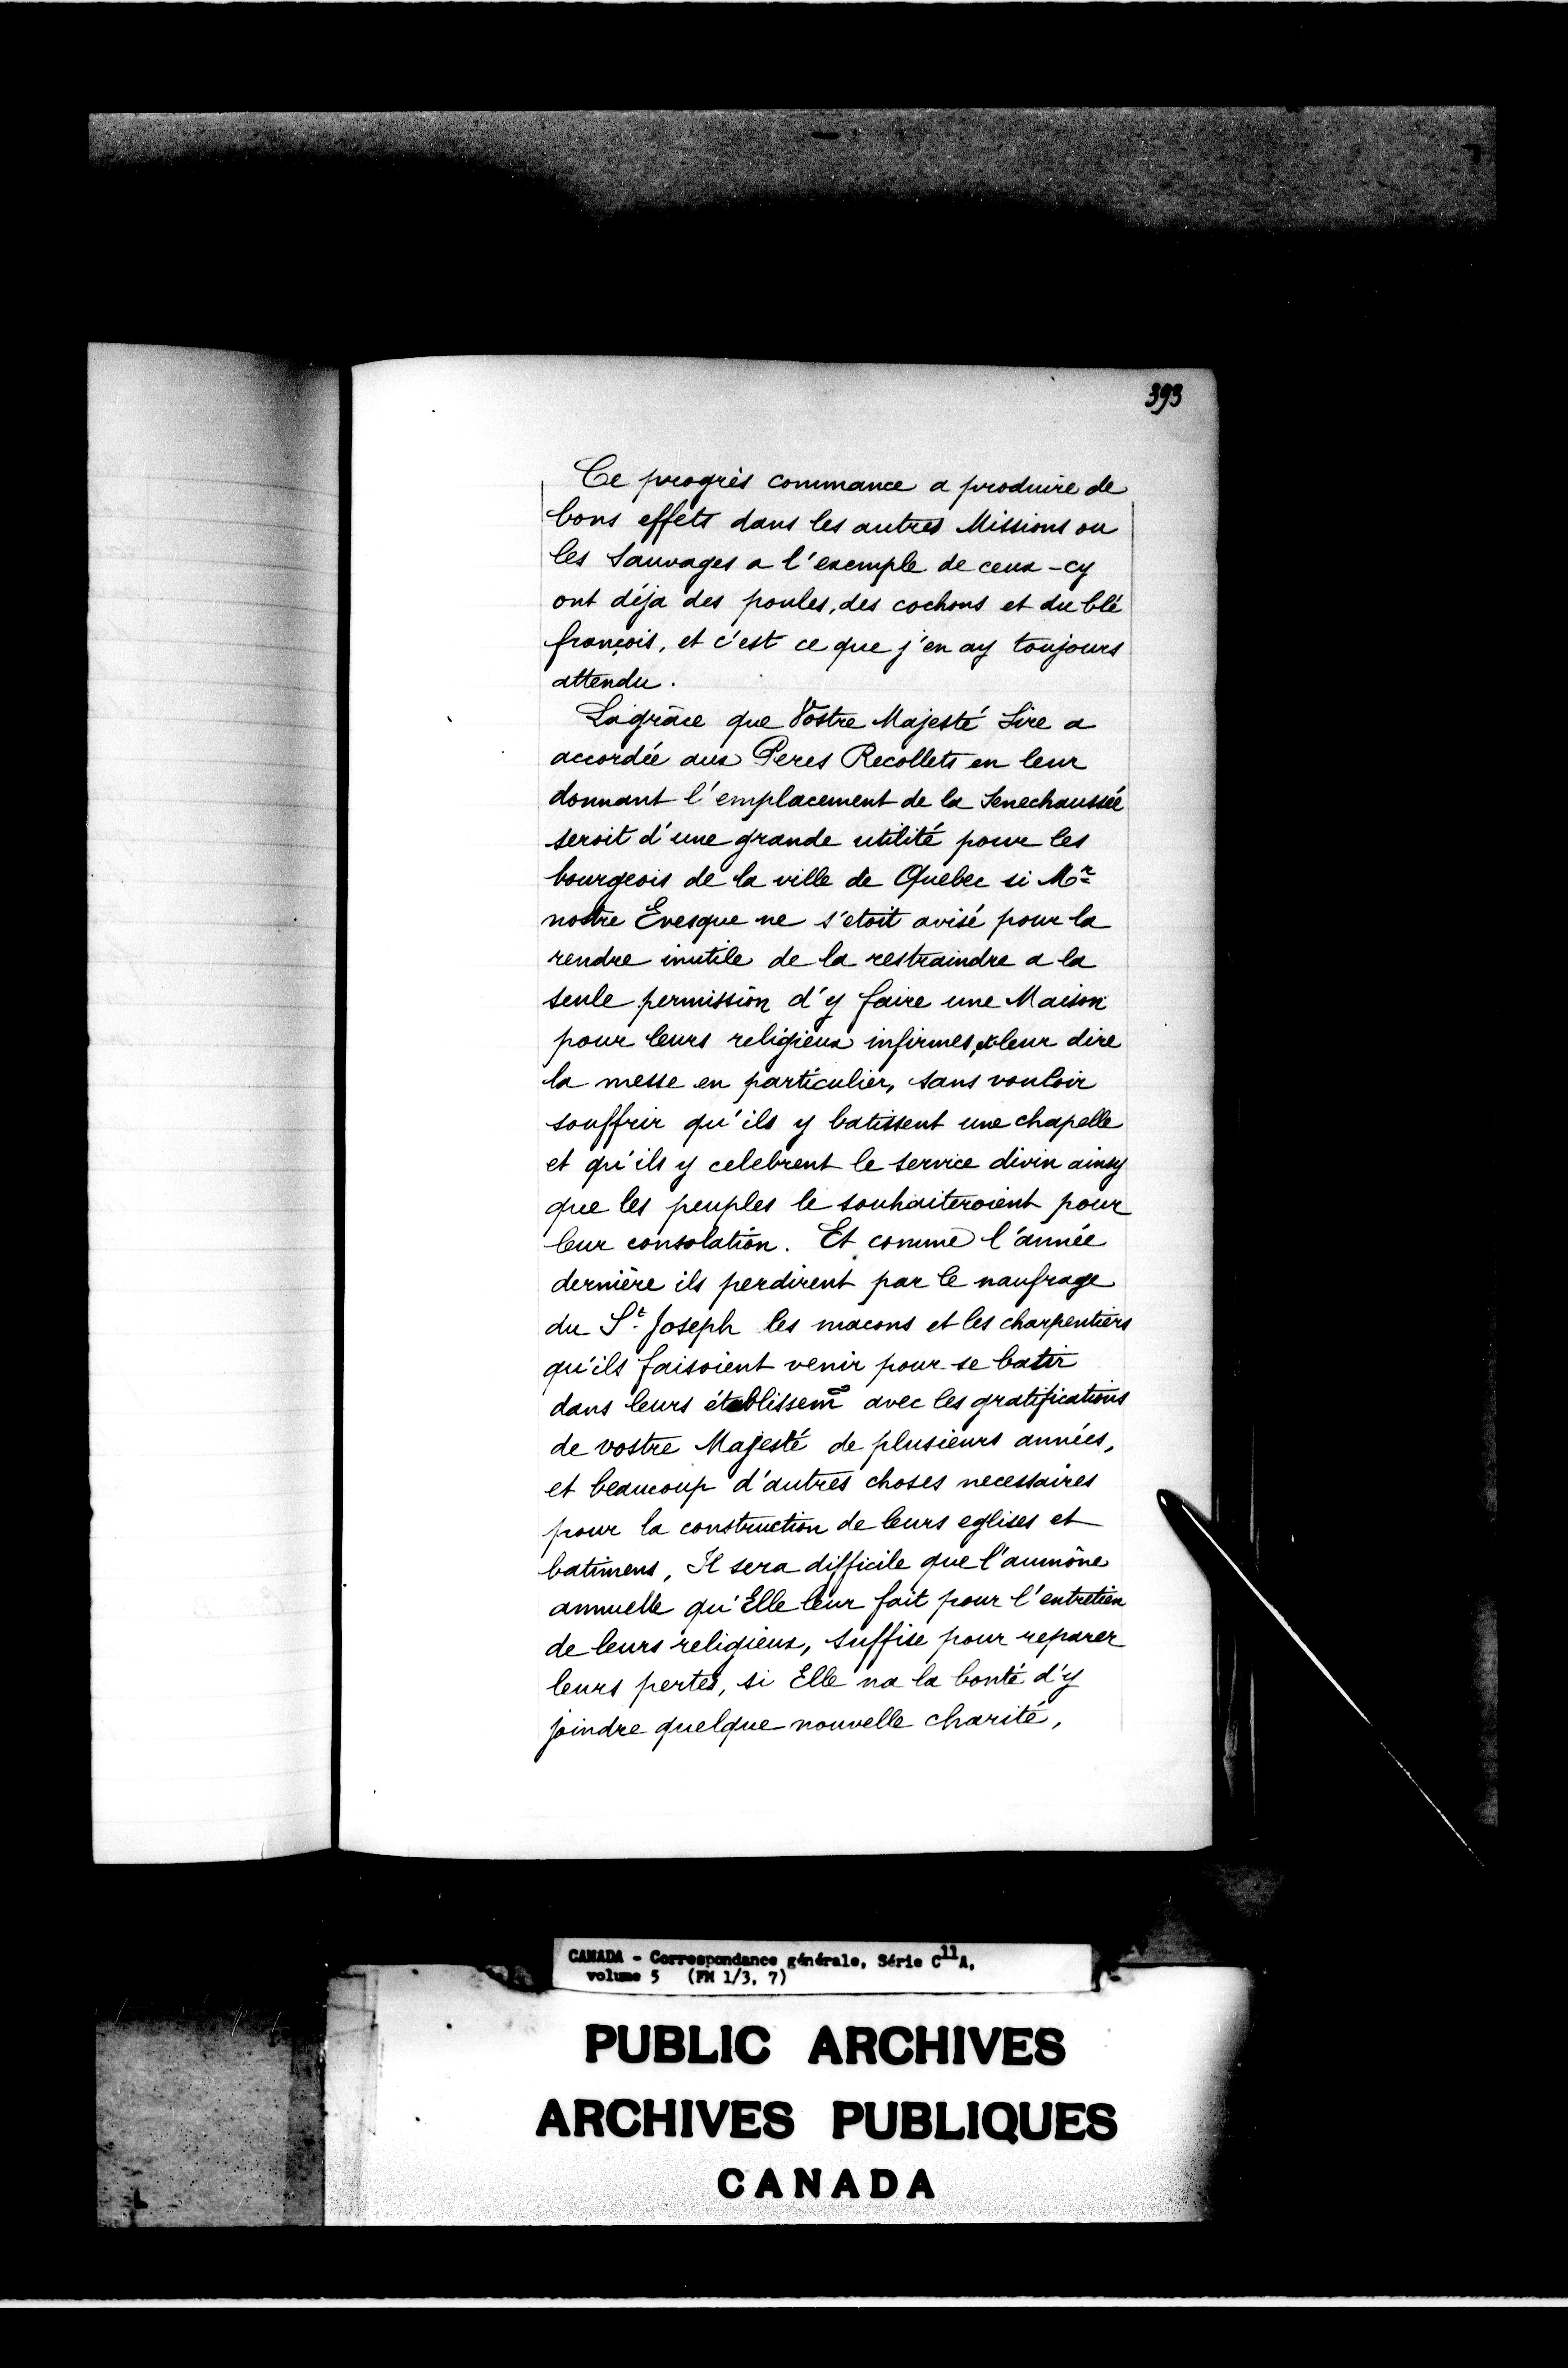 393
Ce progrès commance a produire de
bons effets dans les autres Missions ou
les Sauvages a l'exemple de ceux-cy
ont déja des poules, des cochons et du blé
françois, et c'est ce que j'en ay toujours
attendu.
La grâce que Vostre Majesté Sire a
accordée aux Peres Recollets en leur
donnant l'emplacement de la Senechaussée
seroit d'une grande utilité pour les
bourgeois de la ville de Quebec si Mr
nostre Evesque ne s'etoit avisé pour la
rendre inutile de la restraindre a la
seule permission d'y faire une Maison
pour leurs religieux infirmes, & leur dire
la messe en particulier, sans vouloir
souffrir qu'ils y batissent une chapelle
et qu'ils y celebrent le service divin ainsy
que les peuples le souhaiteroient pour
leur consolation. Et comme l'année
dernière ils perdirent par le naufrage
du St. Joseph les macons et les charpentiers
qu'ils faisoient venir pour se batir
dans leurs établissem avec les gratifications
de vostre Majesté de plusieurs années,
et beaucoup d'autres choses necessaires
pour la construction de leurs eglises et
batimens, Il sera difficile que l'aumône
annuelle qu'Elle leur fait pour l'entretien
de leurs religieux, suffise pour reparer
leurs pertes, si Elle na la bonté d'y
joindre quelque nouvelle charité,
CANADA - Correspondance générale, Série C11A,
volume 5 (FM 1/3, 7)
PUBLIC ARCHIVES
ARCHIVES PUBLIQUES
CANADA